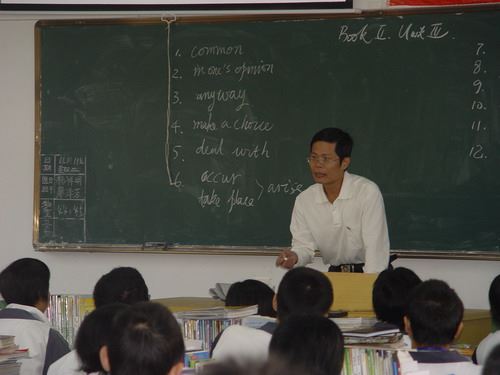 Book II. Unit III.
1. common
2. in one's opinion
3. anyway
4. make a choice
5. deal with
6. occur
take place > arise
7.
8.
9.
10.
11.
12.